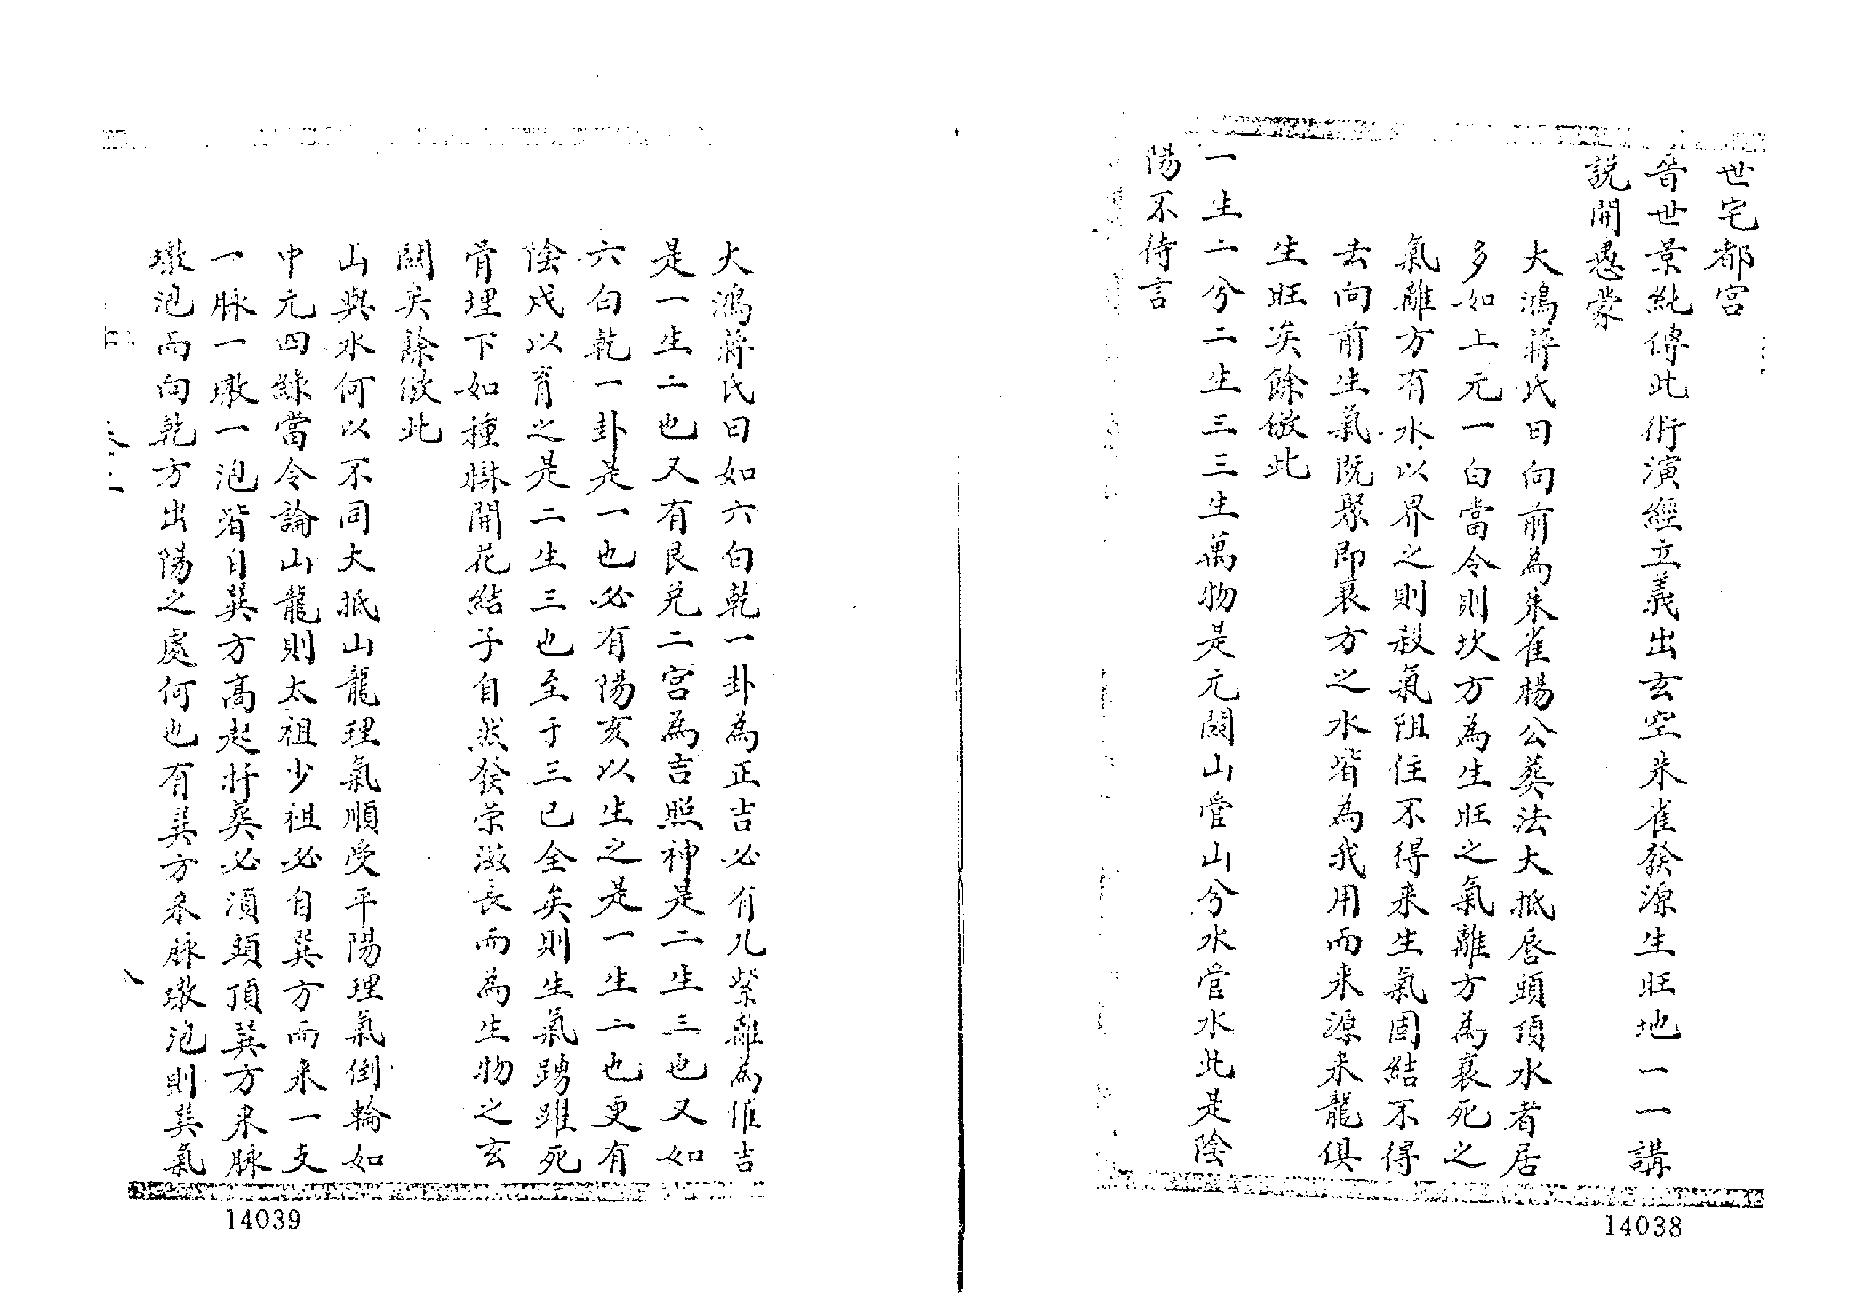 世宅都宮
晉世景純傳此術演經立義出玄空朱雀發源生旺地一一講
說開愚蒙
大鴻蔣氏曰向前為朱雀楊公葬法大抵唇頭頂水者居
多如上元一白當令則坎方為生旺之氣離方為衰死之
氣離方有水以界之則殺氣阻住不得來生氣固結不得
去向前生氣既聚即衰方之水皆為我用而來源來龍俱
生旺矣餘倣此
一生二兮二生三三生萬物是元關山管山兮水管水此是陰
陽不待言
14038
大鴻蔣氏曰如六白乾一卦為正吉必有九紫離為催吉
是一生二也又有艮兌二宮為吉照神是二生三也又如
六白乾一卦是一也必有陽亥以生之是一生二也更有
陰戌以育之是二生三也至于三已全矣則生氣踴躍死
骨埋下如種樹開花結子自然發榮滋長而為生物之玄
關矣餘倣此
山與水何以不同大抵山龍理氣順受平陽理氣倒輪如
中元四綠當令論山龍則太祖少祖必自巽方而來一支
一脉一墩一泡皆自巽方高起阡葬必須頭頂巽方來脉
墩泡而向乾方出陽之處何也有巽方來脉墩泡則巽氣
14039